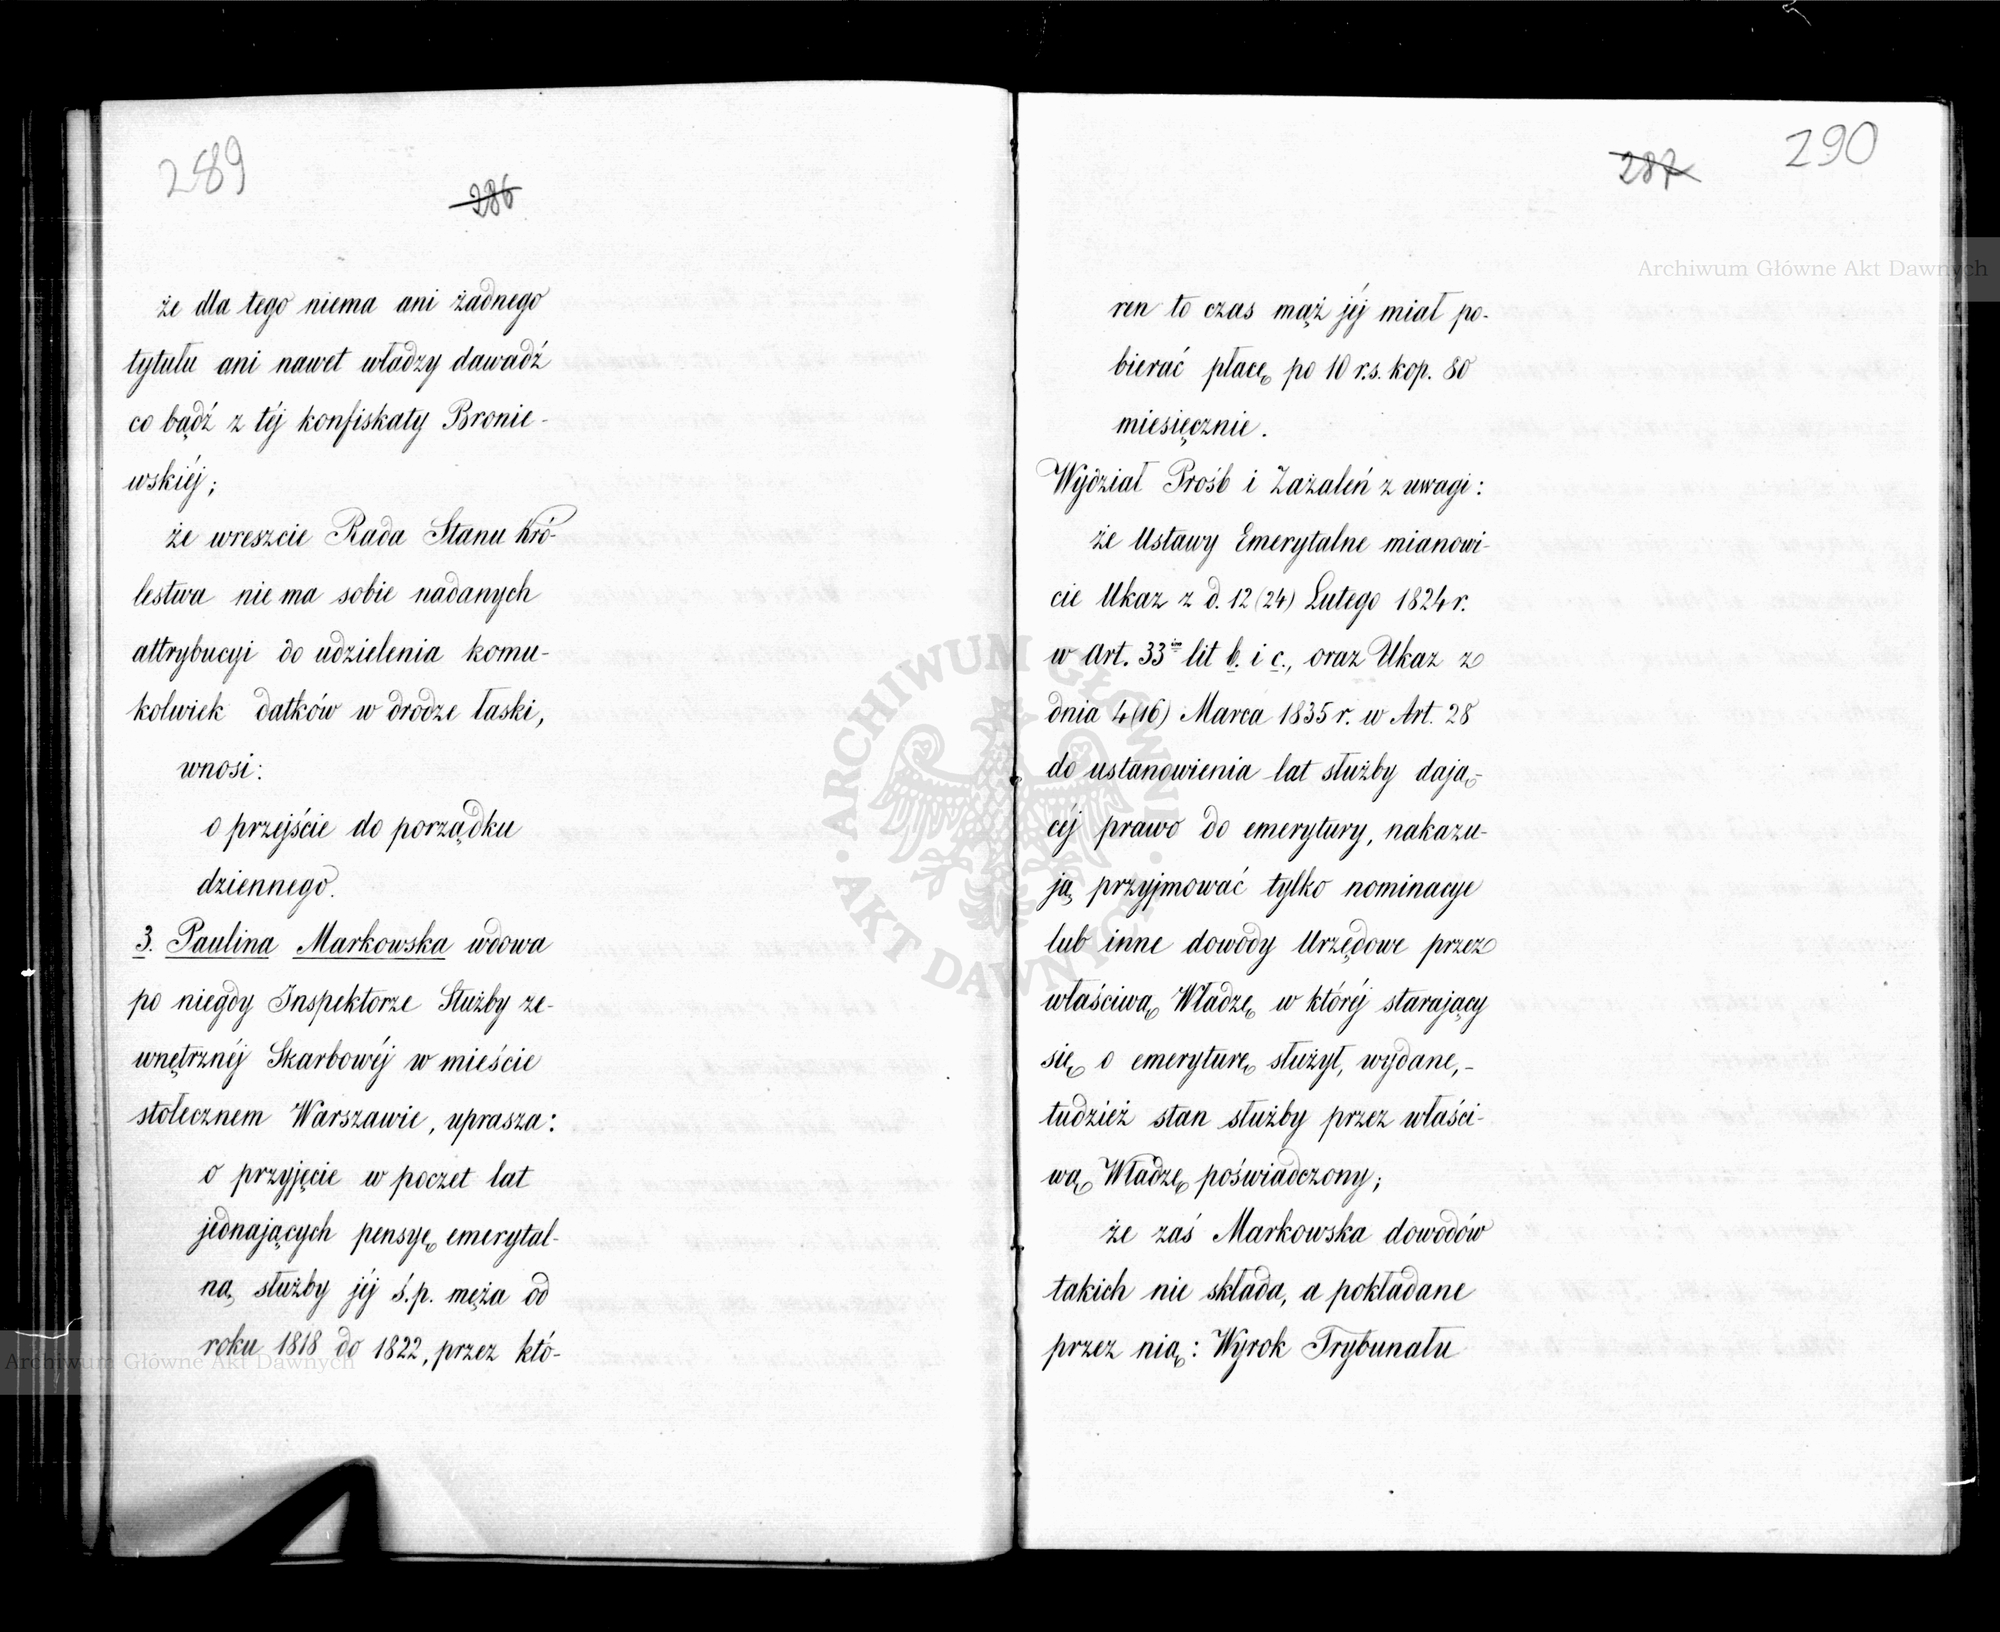 289
286
że dla tego niema ani żadnego
tytułu ani nawet władzy dawadź
co bądź z téj konfiskaty Bronie-
wskiéj;
że wreszcie Rada Stanu Kró-
lestwa nie ma sobie nadanych
attrybucyi do udzielenia komu-
kolwiek datków w drodze łaski,
wnosi:
o przejście do porządku
dziennego.
3. Paulina Markowska wdowa
po niegdy Inspektorze Służby ze-
wnętrznéj Skarbowéj w mieście
stołecznem Warszawie, uprasza:
o przyjęcie w poczet lat
jednających pensyę emerytal-
ną służby jéj ś.p. męża od
roku 1818 do 1822, przez któ-
287
290
ren to czas mąż jéj miał po-
bierać płacę po 10 r.s. kop. 80
miesięcznie.
Wydział Prośb i Zażaleń z uwagi:
że Ustawy Emerytalne mianowi-
cie Ukaz z d. 12 (24) Lutego 1824 r.
w Art. 33im lit b. i c., oraz Ukaz z
dnia 4 (16) Marca 1835 r. w Art. 28
do ustanowienia lat służby dają-
céj prawo do emerytury, nakazu-
ją przyjmować tylko nominacye
lub inne dowody Urzędowe przez
właściwą Władzę w któréj starający
się o emeryturę służył, wydane,-
tudzież stan służby przez właści-
wą Władzę poświadczony;
że zaś Markowska dowodów
takich nie składa, a pokładane
przez nią: Wyrok Trybunału
Archiwum Główne Akt Dawnych
ARCHIWUM GŁÓWNE AKT DAWNYCH
Archiwum Główne Akt Dawnych